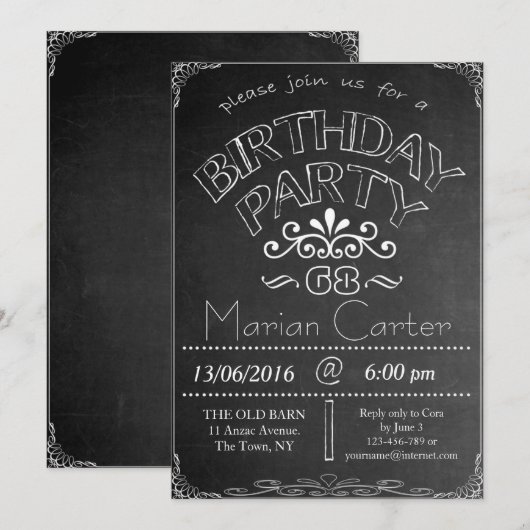 please join us for a
BIRTHDAY
PARTY
~ 68 ~
Marian Carter
13/06/2016 @ 6:00 pm
THE OLD BARN
11 Anzac Avenue.
The Town, NY
Reply only to Cora
by June 3
123-456-789 or
yourname@internet.com